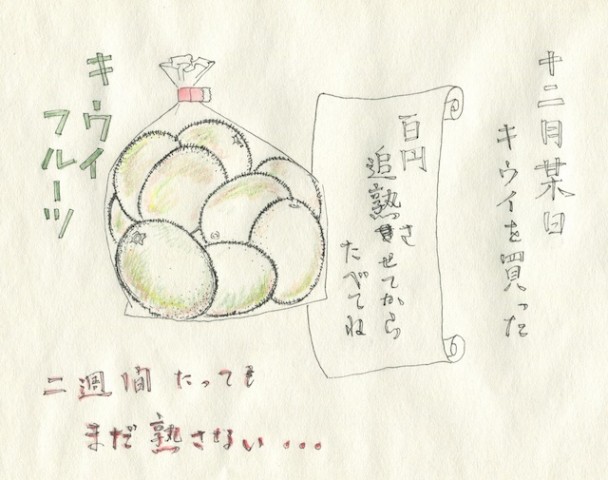 十二月某日
キウイを買った
百円
追熟させてから
たべてね
キウイ
フルーツ
二週間たっても
まだ熟さない・・・